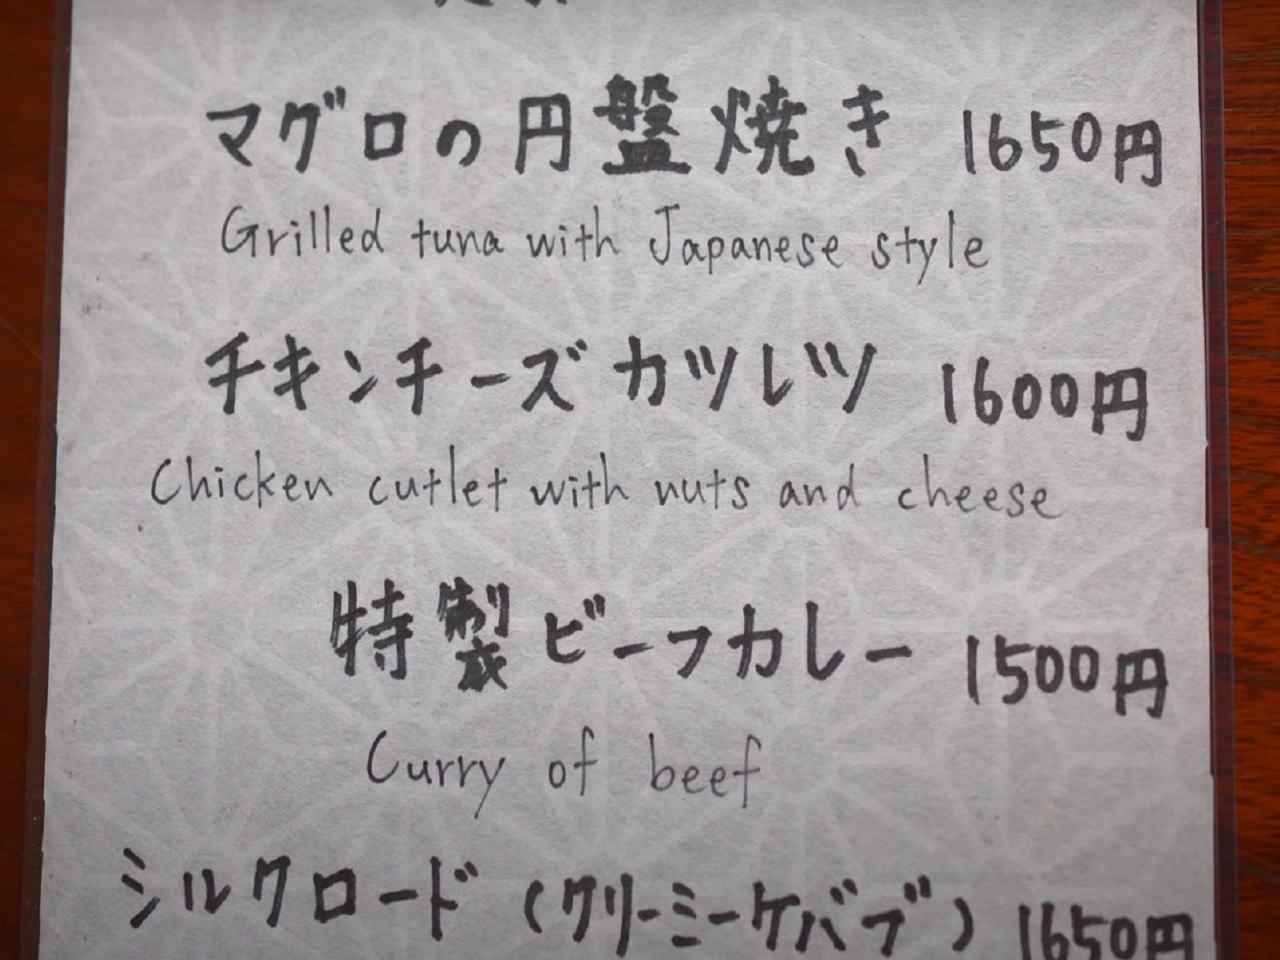 マグロの円盤焼き 1650円
Grilled tuna with Japanese style
チキンチーズカツレツ 1600円
Chicken cutlet with nuts and cheese
特製ビーフカレー 1500円
Curry of beef
シルクロード (クリーミーケバブ) 1650円